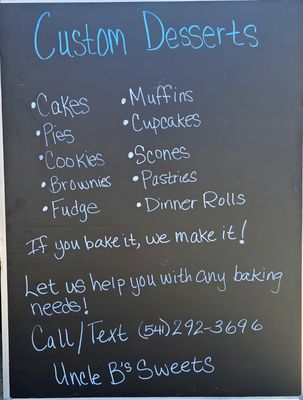 Custom Desserts
•Cakes
•Pies
•Cookies
•Brownies
•Fudge
•Muffins
•Cupcakes
•Scones
•Pastries
•Dinner Rolls
If you bake it, we make it!
Let us help you with any baking
needs!
Call/Text (541) 292-3696
Uncle B's Sweets